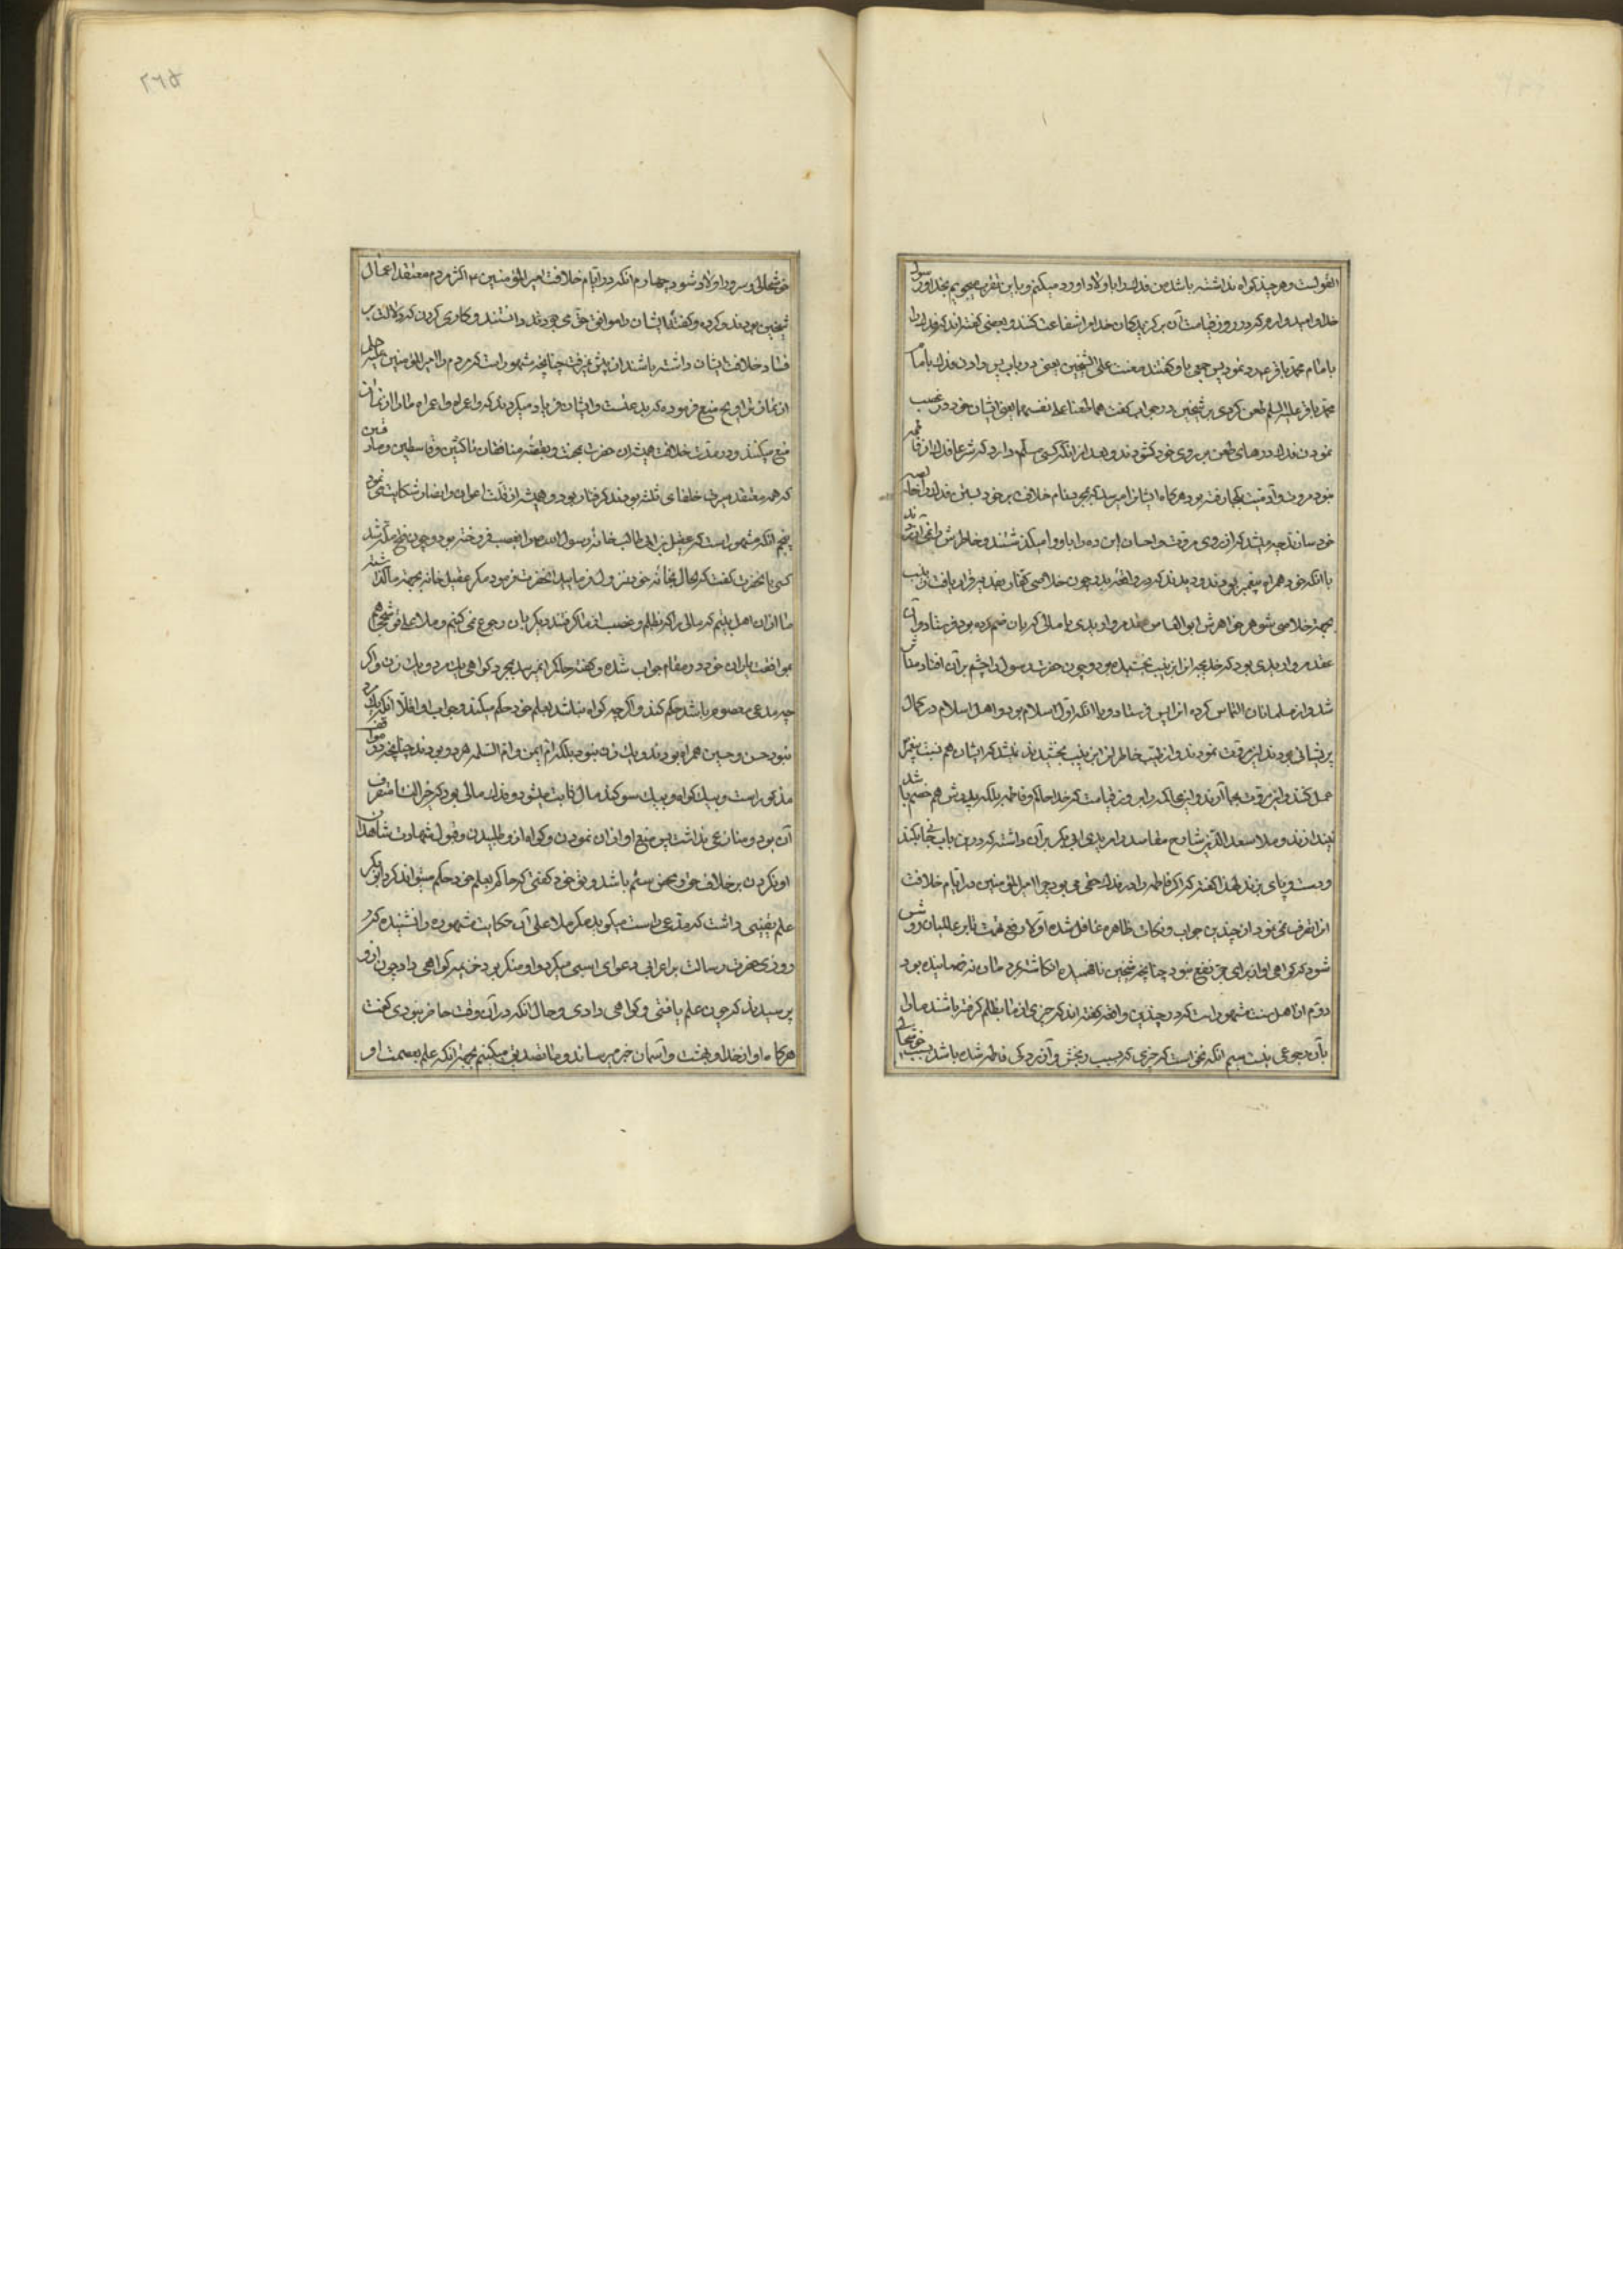 القولست و هر چند کواه نداشته باشد من فدک را باولاد او رد میکنم و باین تقرب میجویم بخدا و رسول
خدا و امیدوارم که در روز قیامت آن برکزیدکان خدا مرا شفاعت کنند و بعضی کفته‌اند که فدک را
با امام محمد باقر رد نمود پس جمعی باو کفتند طعنت علی الشیخین یعنی در باب پس دادن فدک با امام
محمد باقر علیه السلم طعن کردی بر شیخین در جواب کفت هما طعنا علی انفسهما یعنی ایشان خود در غصب
نمودن فدک درهای طعن بر روی خود کشودند و بعد از آنکه کسی مسلم دارد که شرعا فدک از فاطمه
نبود مروت و آدمیت کجا رفته بود هرکاه ایشانرا میرسد که بمجرد نام خلافت بر خود بستن فدک را خالصه
خود سازند چه میشد که از روی مروت و احسان این ده را باو وا میکذاشتند و خاطرش را نمی‌آزردند
با آنکه خود همراه پیغمبر بودند و دیدند که در واقعه بدر چون خلاصی کفار بفدیه قرار یافت زینب
بجهة خلاصی شوهر خواهرش ابو العاص عقد مرواریدی با مالی که بان ضم کرده بود فرستاد و آن
عقد مرواریدی بود که خدیجه انرا بزینب بخشیده بود و چون حضرت رسول را چشم بر آن افتاد متاثر
شد و از مسلمانان التماس کرده انرا پس فرستاد و با آنکه اول اسلام بود و اهل اسلام در کمال
پریشانی بودند این مروت نمودند و از طیب خاطر انرا بزینب بخشیدند نشد که ایشان هم نسبت بدختر پیغمبر
عمل کنند و این مروت بجا آرند و این محاکمه را بروز قیامت که خدا حاکم و فاطمه بلکه پدرش هم خصم باشد
نیندازند و ملا سعد الدین شارح مقاصد را مریدی ابی بکر بر آن داشته که در این باب سخنی بجا بکند
و دست و پای بزند لهذا کفته که اکر فاطمه را در فدک حقی می بود چرا امیر المؤمنین در ایام خلافت
انرا تصرف نمی‌نمود از چندین جواب و نکات ظاهره غافل شده اولا رفع تهمت تا بر عالمیان روشن
شود که کواهی او از برای جر نفع نبود چنانچه شیخین نافهمیده انکاشته بردند مال نه رضا نبیده بود
دوم از اهل بیت مشهور است که در چندین واقعه کفته‌اند که چیزی از ما بظلم کرفته باشند ما را
بآن رجوعی نیست سیم آنکه نخواست که چیزی که سبب رنجش و آزردکی فاطمه شده باشد سبب خوشحالی
خوشحالی و سرور اولاد شود چهارم آنکه در ایام خلافت امیر المؤمنین ۴ اکثر مردم معتقد اعمال
شیخین بودند و کرده و کفته ایشان را موافق حق می بودند دانستند و کاری کردن که دلالت بر
فساد خلافت ایشان داشته باشد از پیش نمیرفت چنانچه مشهور است که مردم را امیر المؤمنین علیه السلم
از نماز تراویح منع فرموده که بدعتست و ایشان فریاد میکردند که واعمراه واعمراه ما را از نماز
منع میکنند و در مدت خلافت همیشه ان حضرت بمحنت و بغضه منافقان ناکثین و قاسطین و مارقین
که همه معتقد سیرت خلفای ثلثه بودند کرفتار بود و همیشه از قلت اعوان و انصار شکایت می نمود
پنجم آنکه مشهور است که عقیل بن ابی طالب خانه رسول الله ص را بغصب فروخته بود و چون فتح مکه شد
کسی بآنحضرت کفت که الحال بخانه خود نزول فرمایید آنحضرت فرمود مکر عقیل خانه بجهة ما کذاشته
ما از ان اهل بیتیم که مالی را که بظلم و غصب از ما کرفتند دیکر بان رجوع نمی کنیم و ملا علی قوشچی هم
بموافقت یاران خود در مقام جواب شده و کفته حاکم را نمیرسد بمجرد کواهی یک مرد و یک زن و اکر
چه مدعی معصوم باشد حکم کند و اکرچه کواه نباشد بعلم خود حکم میکند و جواب او اولا آنکه یک مرد
نبود حسن و حسین همراه بودند و یک زن نبود بلکه ام ایمن و ام السلمه هر دو بودند چنانچه در مواقف
مذکور است و بیک کواه و بیک سوکند مال ثابت میشود و فدک مالی بود که خیر النساء متصرف
آن بود و منازعی نداشت پس منع او از ان نمودن و کواه از او طلبیدن و قبول شهادت شاهدان
او نکردن بر خلاف حق و محض ستم باشد و تو خود کفتی که حاکم بعلم خود حکم میتواند کرد ابو بکر
علم یقینی داشت که مدعی راست میکوید مکر ملا علی آن حکایت مشهوره را نشنیده که در
روزی حضرت رسالت بر اعرابی دعوای اسبی میکرد و او منکر بود خزیمه کواهی داد چون از او
پرسیدند که چون علم یافتی و کواهی دادی و حال آنکه در آن وقت حاضر نبودی کفت
هرکاه او از خدا و بهشت و آسمان خبر میرساند و ما تصدیق میکنیم بجهة آنکه علم بعصمت او